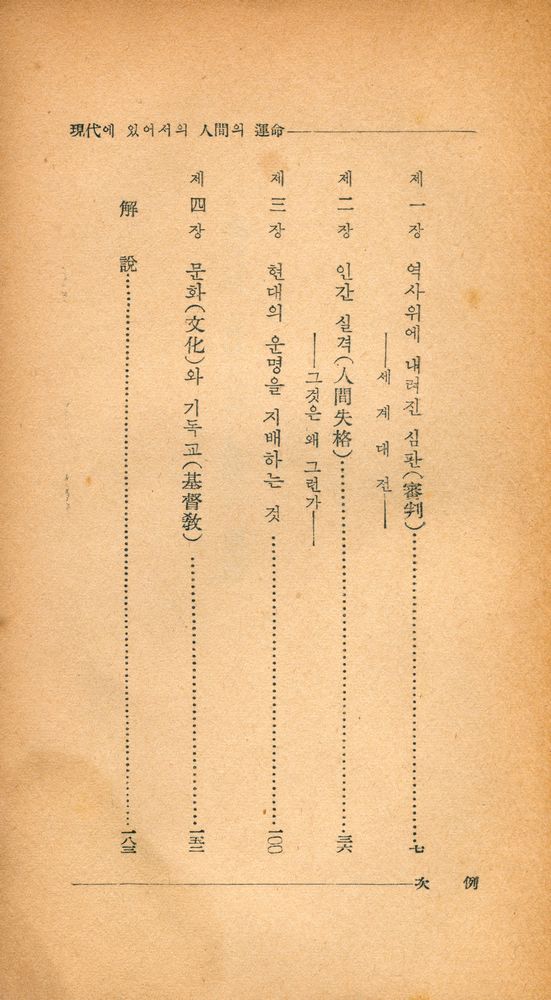 現代에 있어서의 人間의 運命
제一장 역사위에 내려진 심판(審判)……七
――세계대전――
제二장 인간 실격(人間失格)……三六
――그것은 왜 그런가――
제三장 현대의 운명을 지배하는 것……一〇〇
제四장 문화(文化)와 기독교(基督敎)……一五二
解說……一八三
次例